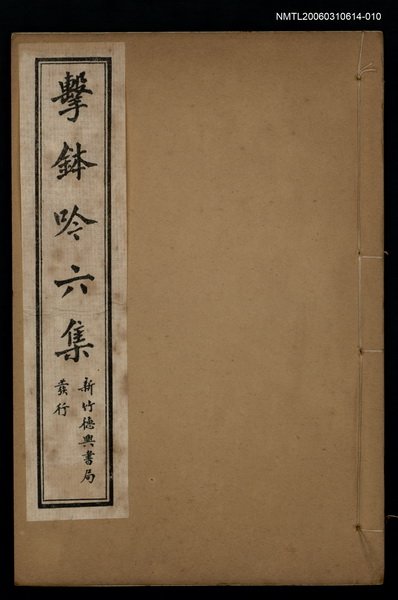 NMTL20060310614-010
擊鉢吟六集
新竹德興書局
發行